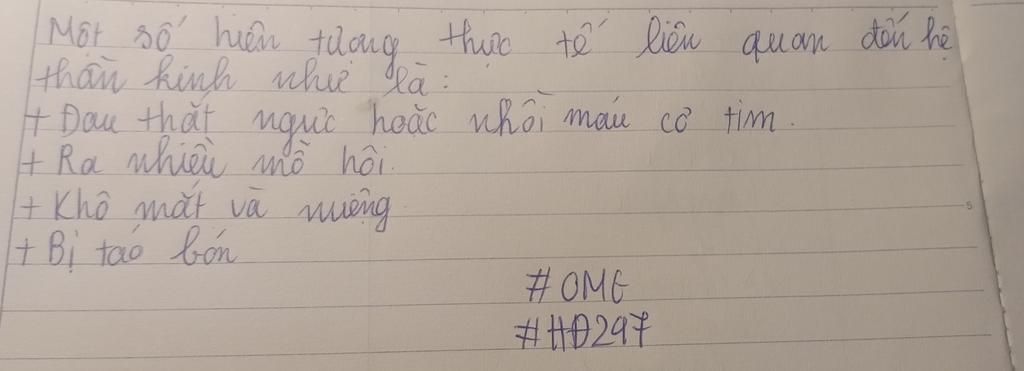 Một số hiện tượng thực tế liên quan đến hệ
thần kinh như là:
+ Đau thắt ngực hoặc nhồi máu cơ tim.
+ Ra nhiều mồ hôi.
+ Khô mắt và miệng
+ Bị táo bón
#OMG
#HĐ297